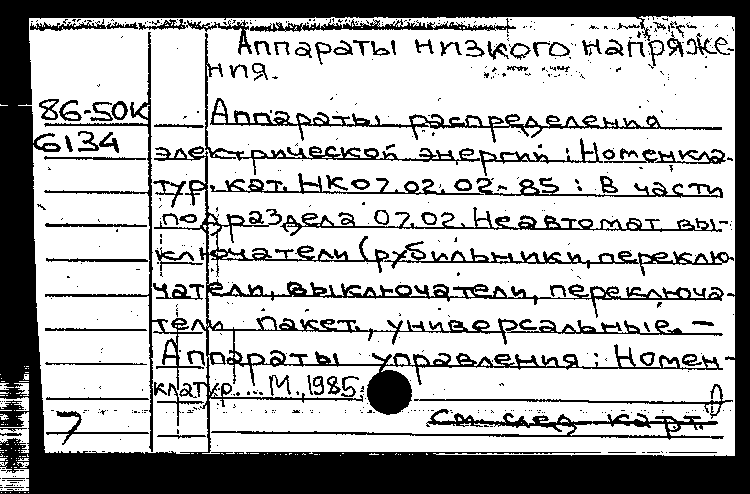 Аппараты низкого напряже-
ния.
86-50К Аппараты распределения
6134 электрической энергии: Номенкла-
тур. кат. НК07.02.02-85: В части
подраздела 07.02. Неавтомат вы-
ключатели (рубильники, переклю-
чатели, выключатели, переключа-
тели, пакет., универсальные. —
Аппараты управления: Номен-
клатур... М., 1985.
7 См. след. карт.